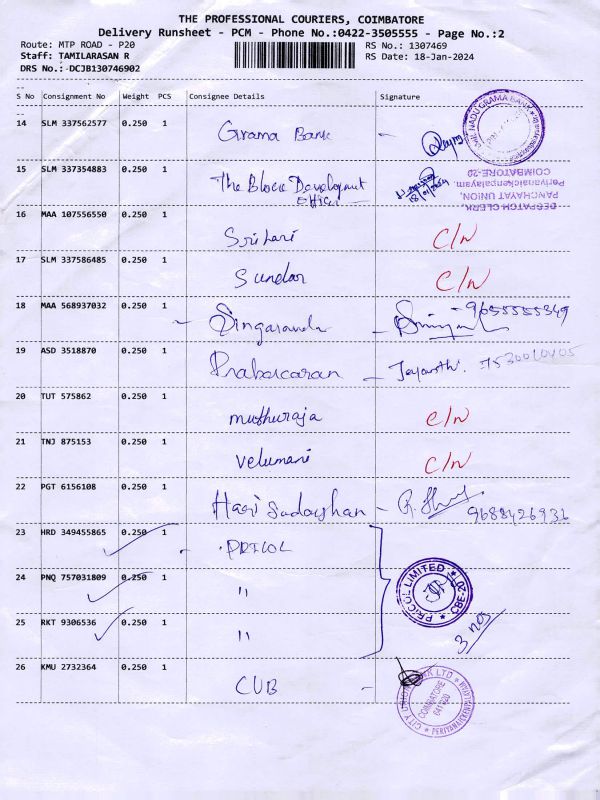 THE PROFESSIONAL COURIERS, COIMBATORE
Delivery Runsheet - PCM - Phone No.:0422-3505555 - Page No.:2
Route: MTP ROAD - P20
RS No.: 1307469
Staff: TAMILARASAN R
RS Date: 18-Jan-2024
DRS No.:-DCJB130746902
S No Consignment No Weight PCS Consignee Details Signature
14 SLM 337562577 0.250 1 Grama Bank -
15 SLM 337354883 0.250 1 The Block Development
officer - 18/01/2024
DESPATCH CLERK,
PANCHAYAT UNION,
Periyanaickenpalayam
COIMBATORE-20
16 MAA 107556550 0.250 1 Srihari C/N
17 SLM 337586485 0.250 1 Sundar C/N
18 MAA 568937032 0.250 1 - 9655555349
19 ASD 3518870 0.250 1 Prabakaran - Jayanthi.
20 TUT 575862 0.250 1 muthuraja C/N
21 TNJ 875153 0.250 1 velumani C/N
22 PGT 6156108 0.250 1 Hari -
23 HRD 349455865 0.250 1 - PRICOL
24 PNQ 757031809 0.250 1 "
PRICOL LIMITED * CBE-20 *
25 RKT 9306536 0.250 1 "
3 nos
26 KMU 2732364 0.250 1 CUB -
CITY UNION BANK LTD
COIMBATORE
641 020